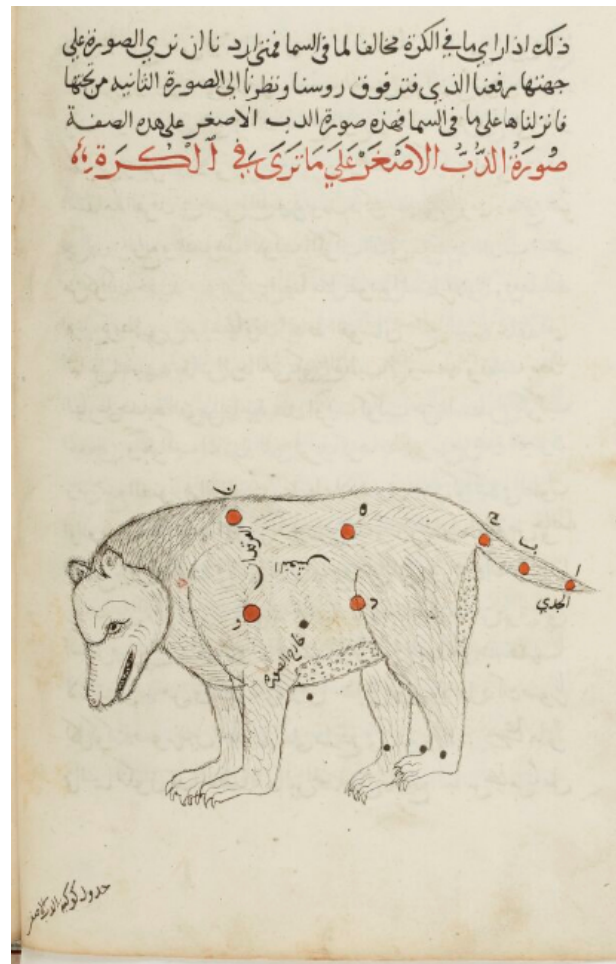 ذلك اذا راى ما في الكرة مخالفا لما في السما فمتى اردنا ان نرى الصورة على
جهتها رفعنا الذي فتر فوق روسنا ونظرنا الى الصورة الثانية من تحتها
فانزلناها على ما في السما فهذه صورة الدب الاصغر على هذه الصفة
صُورَةُ الدُّبِّ الاصْغَرْ عَلَي مَا تَرَى فِي الْكُرَةِ
ز
ه
ج
ب
ا
الجدي
الفرقدان
و
د
خارج الصورة
جدول كوكبه الدب الاصغر